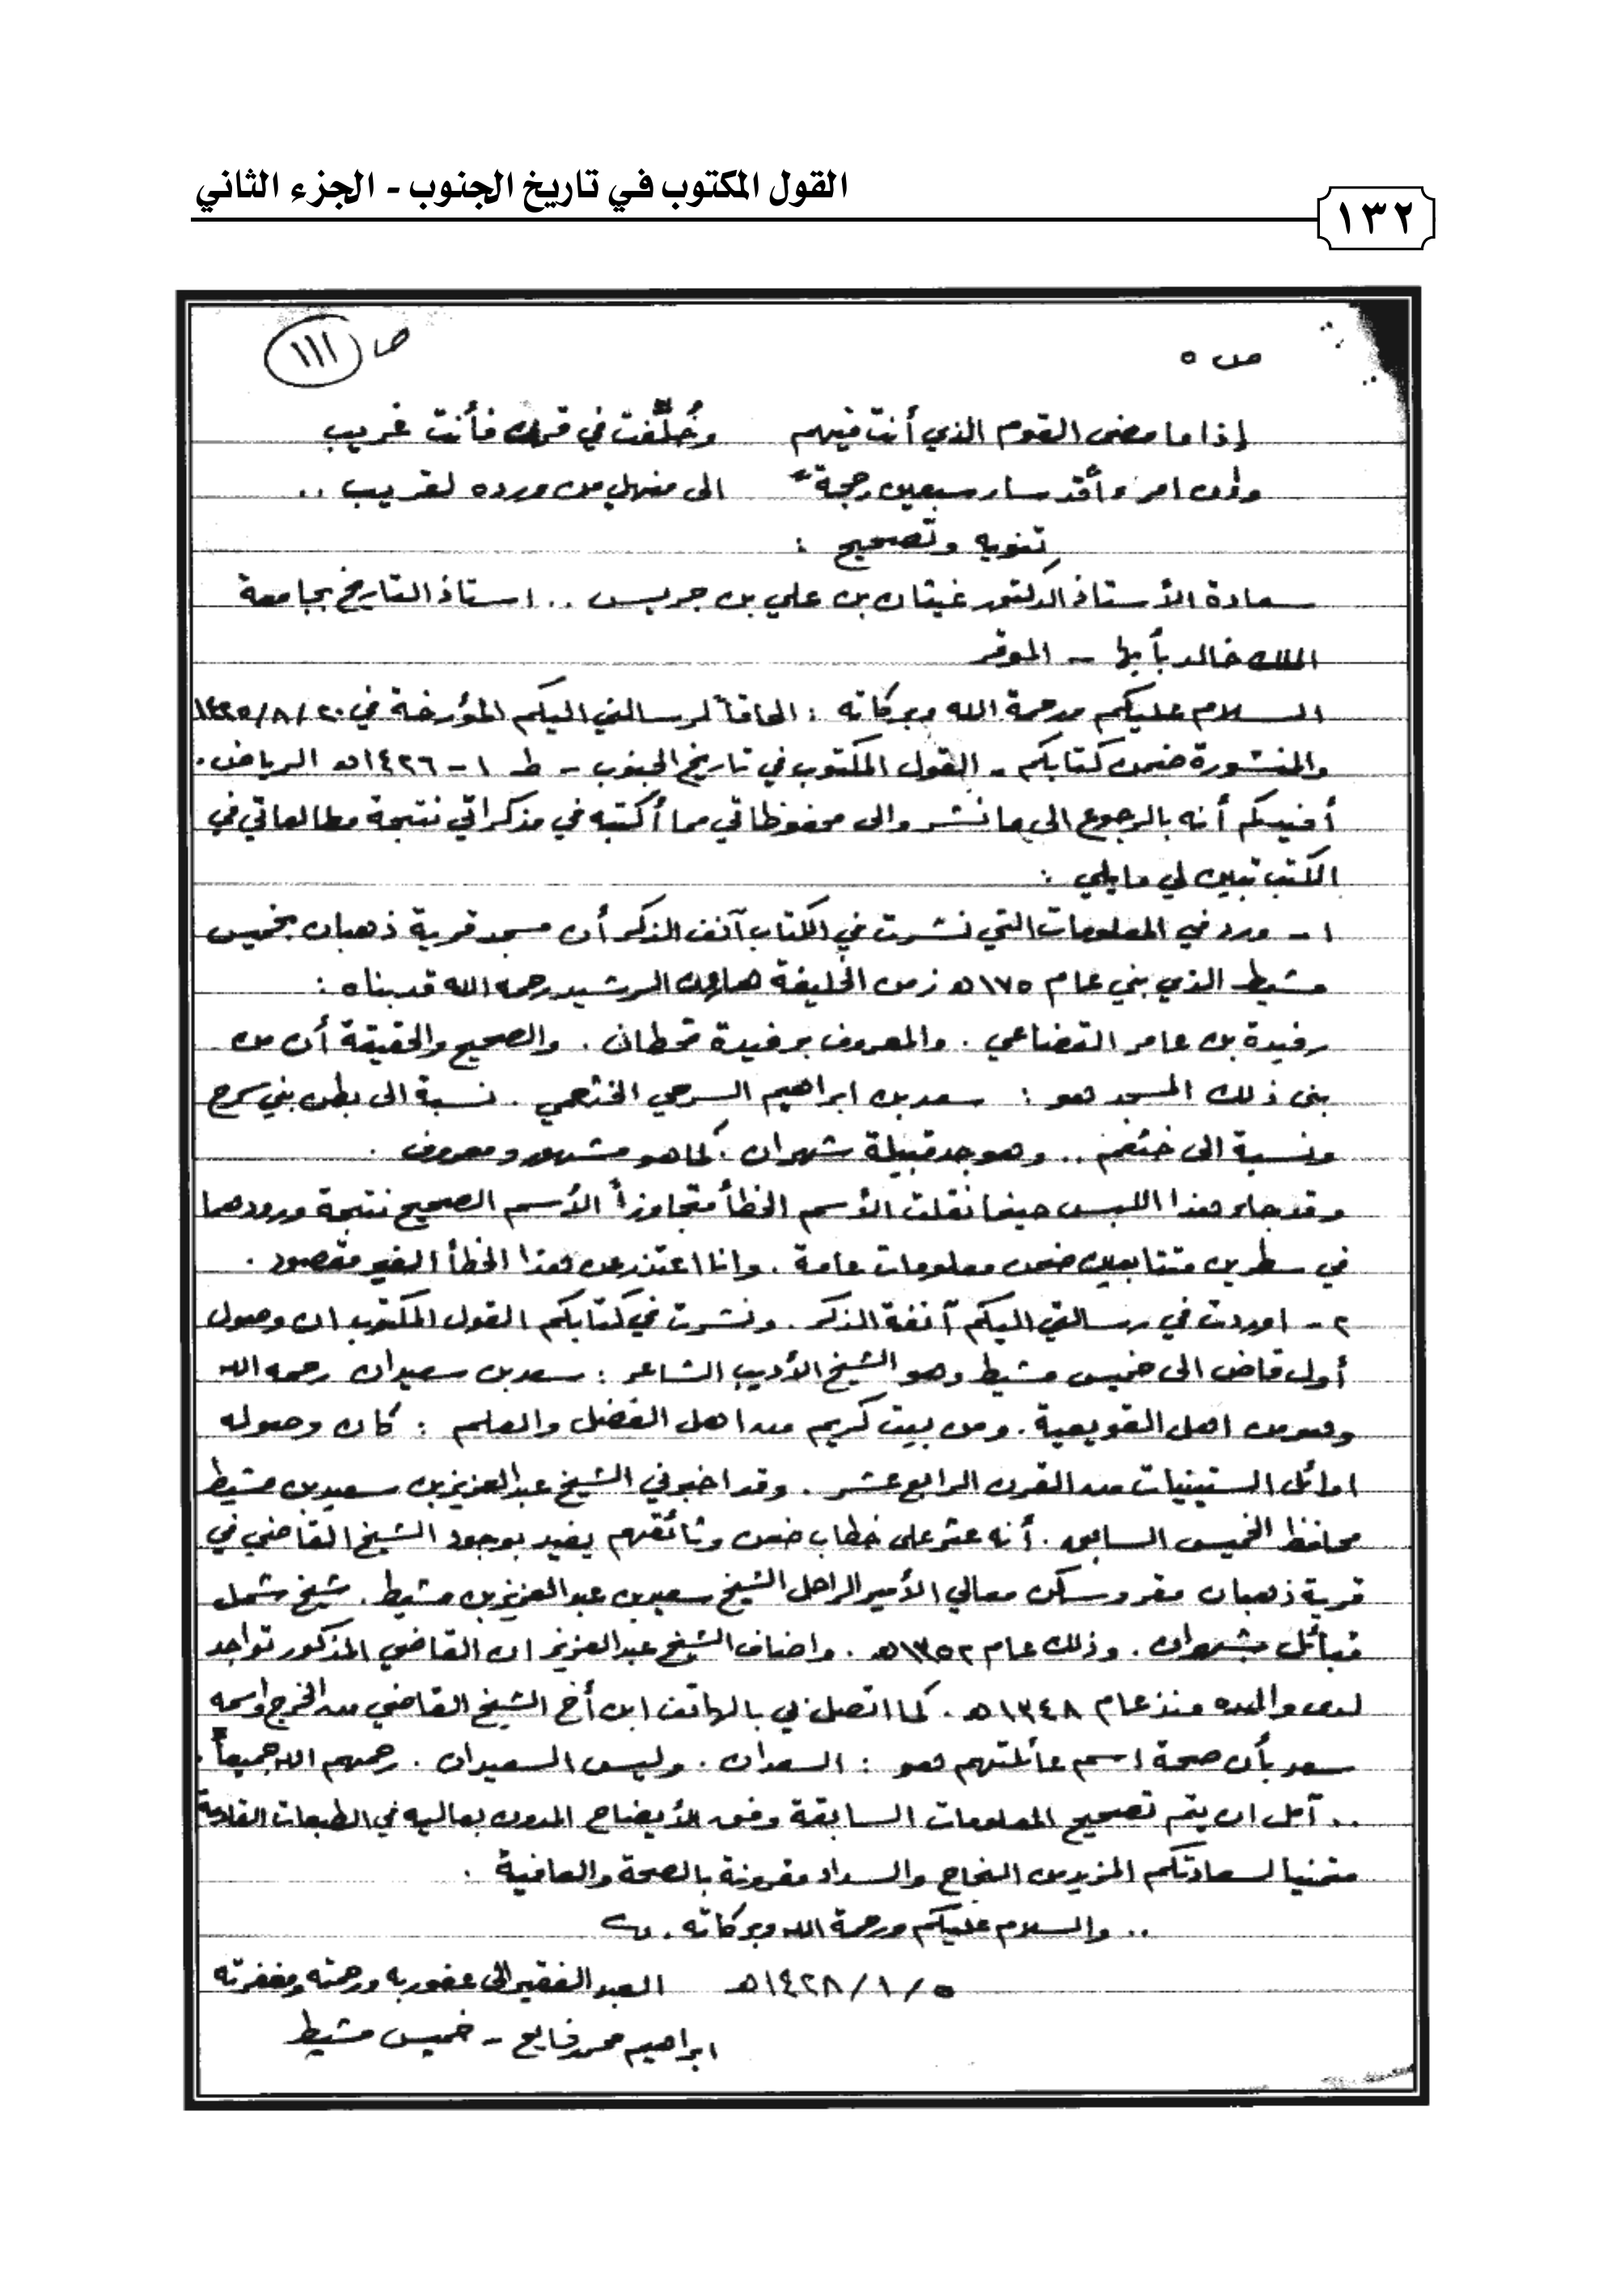 القول المكتوب في تاريخ الجنوب - الجزء الثاني
١٣٢
ص ٥
ص ١١١
إذا ما مضى القوم الذي أنت فيهم وخُلِّفت في قرن فأنت غريب
وإن امرءاً قد سار سبعين حجة الى منهل من ورده لقريب ..
تنويه وتصحيح :
سعادة الأستاذ الدكتور غيثان بن علي بن جريس .. استاذ التاريخ بجامعة
الملك خالد بأبها - الموقر
السلام عليكم ورحمة الله وبركاته : الحاقاً لرسالتي اليكم المؤرخة في ٢٠/٨/١٤٢٥
والمنشورة ضمن كتابكم - القول المكتوب في تاريخ الجنوب - ط ١ - ١٤٢٦هـ الرياض .
أفيدكم أنه بالرجوع الى ما نشر والى محفوظاتي مما أكتبه في مذكراتي نتيجة مطالعاتي في
الكتب تبين لي ما يلي :
١ - ورد في المعلومات التي نشرت في الكتاب آنف الذكر أن مسجد قرية ذهبان بخميس
مشيط الذي بني عام ١٧٥هـ زمن الخليفة هارون الرشيد رحمه الله قد بناه :
رفيدة بن عامر القضاعي . والمعروف برفيدة قحطان . والصحيح والحقيقة أن من
بنى ذلك المسجد هو : سعد بن ابراهيم السرحي الخثعمي . نسبة الى بطن بني سرح
ونسبة الى خثعم .. وهو جد قبيلة شهران . كما هو مشهور ومعروف .
وقد جاء هذا اللبس حينما نقلت الأسم الخطأ متجاوزاً الأسم الصحيح نتيجة ورودهما
في سطرين متتابعين ضمن معلومات عامة . وانا اعتذر عن هذا الخطأ الغير مقصود .
٢ - اوردت في رسالتي اليكم آنفة الذكر . ونشرت في كتابكم القول المكتوب ان وصول
أول قاض الى خميس مشيط وهو الشيخ الأديب الشاعر : سعد بن سعيدان رحمه الله
وهو من اهل القويعية . ومن بيت كريم من اهل الفضل والعلم : كان وصوله
اوائل الستينيات من القرن الرابع عشر . وقد اخبرني الشيخ عبدالعزيز بن سعيد بن مشيط
محافظ الخميس السابق . أنه عثر على خطاب ضمن وثائقهم يفيد بوجود الشيخ القاضي في
قرية ذهبان مقر وسكن معالي الأمير الراحل الشيخ سعيد بن عبدالعزيز بن مشيط . شيخ شمل
قبائل شهران . وذلك عام ١٣٥٢هـ . واضاف الشيخ عبدالعزيز ان القاضي المذكور تواجد
لدى والده منذ عام ١٣٤٨هـ . كما اتصل بي بالهاتف ابن أخ الشيخ القاضي من الخرج واسمه
سعد بأن صحة إسم عائلتهم هو : السعدان . وليس السعيدان . رحمهم الله جميعاً .
.. آمل ان يتم تصحيح المعلومات السابقة وفق الأيضاح المدون بعاليه في الطبعات القادمة
متمنيا لسعادتكم المزيد من النجاح والسداد مقرونة بالصحة والعافية .
.. والسلام عليكم ورحمة الله وبركاته .
٥/١/١٤٢٨هـ العبد الفقير الى عفو ربه ورحمته ومغفرته
ابراهيم محمد فايع - خميس مشيط